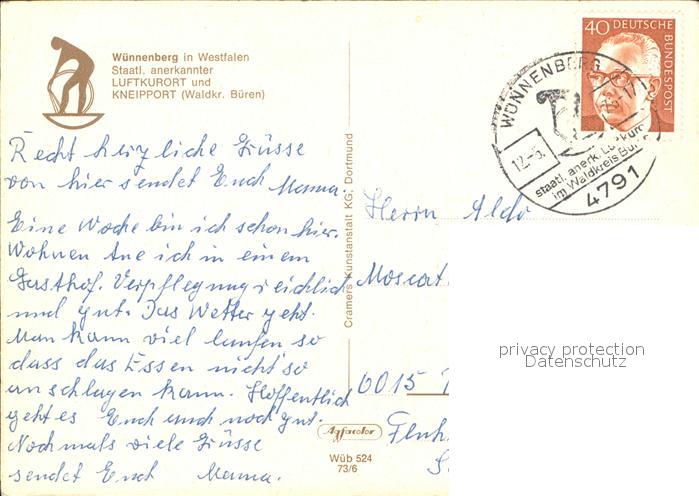 Wünnenberg in Westfalen
Staatl. anerkannter
LUFTKURORT und
KNEIPPORT (Waldkr. Büren)
Recht herzliche Grüsse
von hier sendet Euch Mama.
Eine Woche bin ich schon hier.
Wohnen tue ich in einem
Gasthof. Verpflegung reichlich
und gut. Das Wetter geht.
Man kann viel laufen so
dass das Essen nicht so
anschlagen kann. Hoffentlich
geht es Euch und noch gut.
Nochmals viele Grüsse
sendet Euch Mama.
Cramers Kunstanstalt KG, Dortmund
Agfacolor
Wüb 524
73/6
40 DEUTSCHE BUNDESPOST
WÜNNENBERG
12.-5.
staatl. anerk. Luftkurort
im Waldkreis Büren
4791
Herrn Aldo
Moscat
6015
privacy protection
Datenschutz